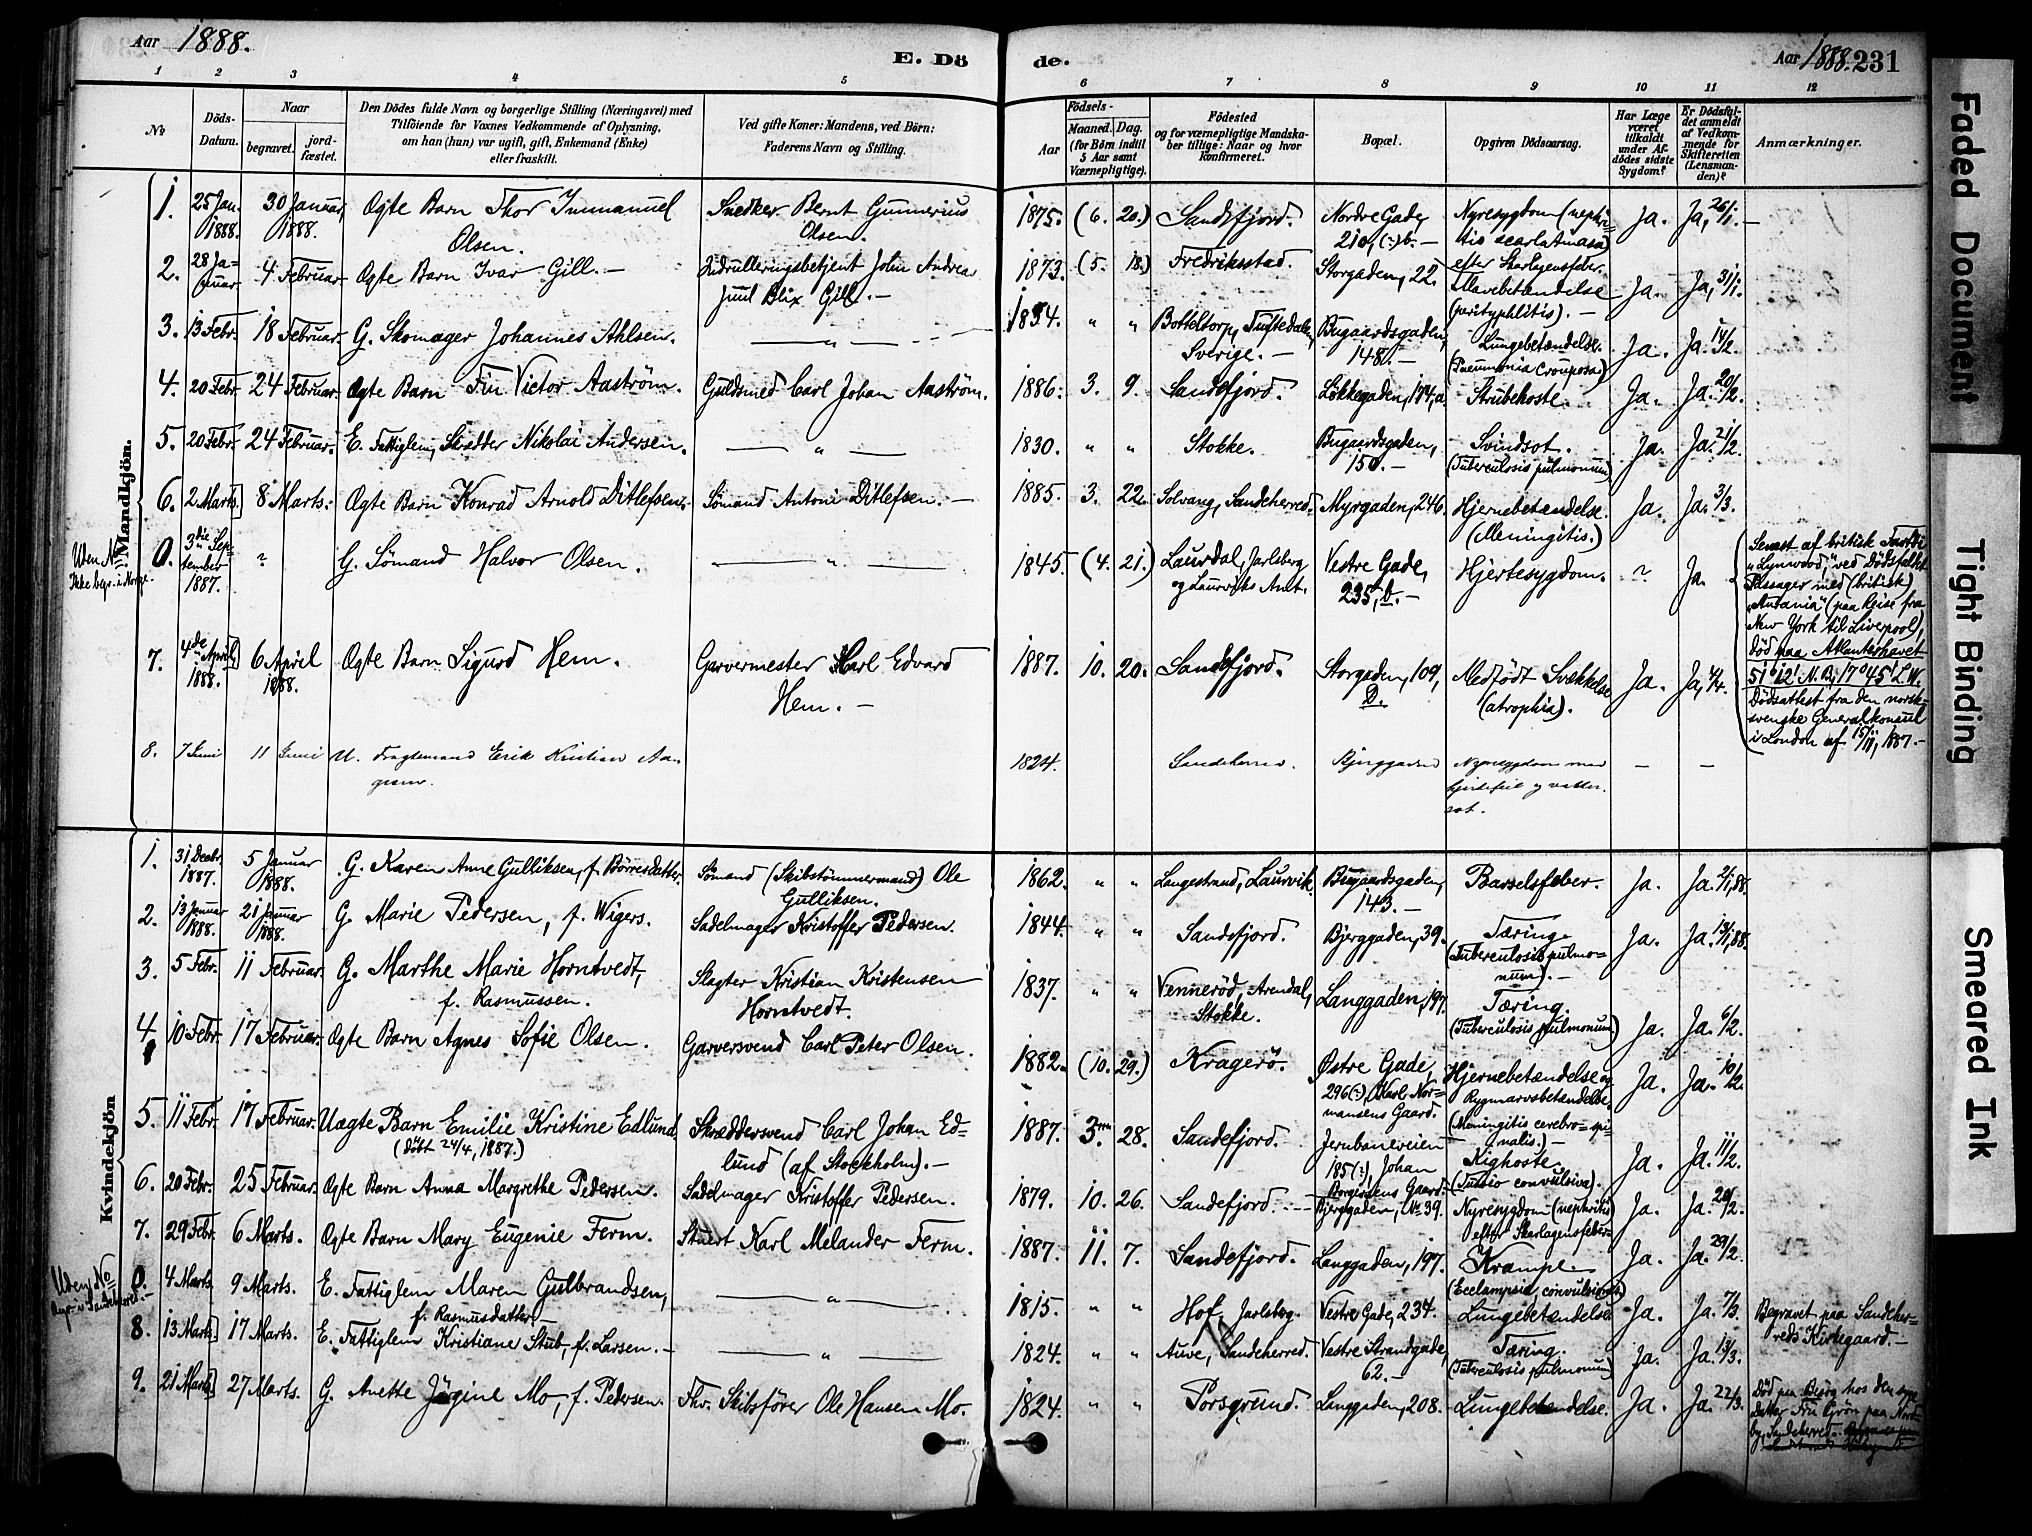 Aar 1888.
E. Dö
de.
Aar 1888. 231
1 2 3 4 5 6 7 8 9 10 11 12
No
Döds-Datum.
Naar
begravet.
jord-fæstet.
Den Dödes fulde Navn og borgerlige Stilling (Næringsvei) med
Tilföiende for Voxnes Vedkommende af Oplysning,
om han (hun) var ugift, gift, Enkemand (Enke)
eller fraskilt.
Ved gifte Koner: Mandens, ved Börn:
Faderens Navn og Stilling.
Födsels-
Aar
Maaned. Dag.
(for Börn indtil
5 Aar samt
Værnepligtige).
Födested
og for værnepligtige Mandska-
ber tillige: Naar og hvor
Konfirmeret.
Bopæl.
Opgiven Dödsaarsag.
Har Læge
været
tilkaldt
under Af-
dödes sidste
Sygdom?
Er Dödsfal-
det anmeldt
af Vedkom-
mende for
Skifteretten
(Lensman-
den)?
Anmærkninger.
Mandkjön.
1. 25 Jan. 1888. 30 Januar, 1888. Ægte Barn Thor Immanuel Olsen. Snedker Bernt Gunnerius Olsen. 1875. (6. 20.) Sandefjord. Nordre Gade, 210, (:) b. — Nyresygdom (nephri-tis scarlatinosa) efter Skarlagensfeber. Ja. Ja, 26/1. —
2. 28 Januar 4 Februar. Ægte Barn Ivar Gill. — Indrulleringsbetjent John Andreas Juul Blix Gill. — 1873. (5. 18.) Fredriksstad. Storgaden, 22. Blindtarmsbetændelse (perityphlitis). — Ja. Ja, 31/1.
3. 13 Febr. 18 Februar. G. Skomager Johannes Ahlsen. — " — 1834. " " Botteltorp, Tuftedalen, Sverige. — Bugaardsgaden, 148. — Lungebetændelse. (Pneumonia crouposa) Ja. Ja. 14/2.
4. 20 Febr. 24 Februar. Ægte Barn Fin Victor Aaström. Guldsmed Carl Johan Aaström. 1886. 3. 9. Sandefjord. Løkkegaden, 174, a. Strubehoste. Ja. Ja. 20/2.
5. 20 Febr. 24 Februar. E. Fattiglem, Skrædder Nikolai Andersen. — " — 1830. " " Stokke. Bugaardsgaden, 150. — Svindsot. (Tuberculosis pulmonum) Ja. Ja. 21/2.
6. 2 Marts. 8 Marts. Ægte Barn Konrad Arnold Ditlefsen. Sömand Antoni Ditlefsen. — 1885. 3. 22. Solvang, Sandeherred. Myrgaden, 246. Hjernebetændelse. (Meningitis.) Ja. Ja. 3/3.
Uden No Ikke begr. i Norge.
0. 3die September 1887. ? G. Sömand Halvor Olsen. — " — 1845. (4. 21.) Laurdal, Jarlsberg og Laurviks Amt. Vestre Gade, 235, b. — Hjertesygdom. ? Ja.
Senest af britisk
"Lynwood," ved Dödsfaldet
Passager med (britisk)
"Aurania" (paa Reise fra
New York til Liverpool),
död paa Atlanterhavet
51°12' N.B; 17°45' L.W.
Dödsattest fra den norsk-
svenske Generalkonsul
i London af 15/11, 1887. —
7. 4de April 1888. 6 April 1888. Ægte Barn Sigurd Hem. Garvermester Karl Edvard Hem. — 1887. 10. 20. Sandefjord. Storgaden, 109, D. Medfödt Svækkelse (atrophia). Ja. Ja, 4/4.
8. 7 Juni 11 Juni U. Fragtemand Erik Kristian Aagesen. 1824. Sandeherred. Bjerggaden Nyresygdom med hjertefeil og vattersot. — —
Kvindekjön
1. 31 Decbr. 1887. 5 Januar 1888. G. Karen Anne Gulliksen, f. Börresdatter. Sömand (Skibstömmermand) Ole Gulliksen. 1862. " " Langestrand, Laurvik. Bugaardsgaden, 143. — Barselsfeber. Ja. Ja. 2/1, 88.
2. 13 Januar 1888. 21 Januar 1888. G. Marie Pedersen, f. Wigers. Sadelmager Kristoffer Pedersen. 1844. " " Sandefjord. Bjerggaden, 39. Tæring. (Tuberculosis pulmo-num). — Ja. Ja. 13/1, 88.
3. 5 Febr. 11 Februar. G. Marthe Marie Horntvedt, f. Rasmussen. Slagter Kristian Kristensen Horntvedt. 1837. " " Venneröd, Arendal, Stokke. Langgaden, 197. Tæring. (Tuberculosis pulmonum) Ja. Ja. 6/2.
4 10 Febr. 17 Februar. Ægte Barn Agnes Sofie Olsen. Garversvend Carl Peter Olsen. 1882. (10. 29.) Kragerö. Østre Gade, 296 (:), Karl Nor-mansens Gaard. Hjernebetændelse og Rygmarvsbetændelse. (Meningitis cerebro-spi-nalis.) — Ja. Ja. 10/2.
5. 11 Febr. 17 Februar. Uægte Barn Emilie Kristine Edlund. (Döbt 24/4, 1887.) Skræddersvend Carl Johan Ed-lund (af Stockholm). — 1887. 3. 28. Sandefjord. Jernbaneveien 185 (:), Johan Borgersens Gaard. Kighoste. (Tussio convulsiva). Ja. Ja. 11/2.
6. 20 Febr. 25 Februar. Ægte Barn Anna Margrethe Pedersen. Sadelmager Kristoffer Pedersen. 1879. 10. 26. Sandefjord. Bjerggaden, No 39. Nyresygdom (nephritis) efter Skarlagensfeber. Ja. Ja. 20/2.
7. 29 Febr. 6 Marts. Ægte Barn Mary Eugenie Ferm. Stuert Karl Melander Ferm. 1887. 11. 7. Sandefjord. Langgaden, 197. Krampe. (Ecclampsia, convulsiones.) Ja. Ja. 29/2.
Uden No
0. 4 Marts. 9 Marts. E. Fattiglem Maren Gulbrandsen, f. Rasmusdatter. — — " — 1815. " " Hof, Jarlsberg. Vestre Gade, 234. Lungebetændelse. Ja. Ja. 7/3. Begravet paa Sandeher-reds Kirkegaard. —
8. 13 Marts. 17 Marts. E. Fattiglem Kristiane Stub, f. Larsen. — — " — 1824. " " Auve, Sandeherred. Vestre Strandgade, 62. — Tæring. (Tuberculosis pulmonum) Ja. Ja. 13/3.
9. 21 Marts 27 Marts. G. Anette Jörgine Mo, f. Pedersen. Fhv. Skibsförer Ole Hansen Mo. 1824. " " Porsgrund. Langgaden, 208. Lungebetændelse. Ja. Ja. 22/3. Död paa Besög hos den syge Datter Fru Grön paa Nord-by, Sandeherred.
Faded Document
Tight Binding
Smeared Ink